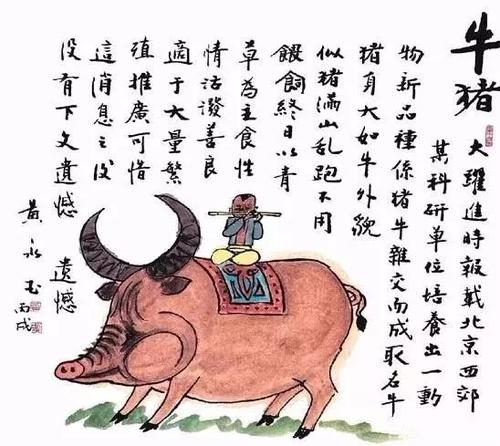 牛猪
大躍進時報載北京西郊
某科研单位培養出一動
物新品種係猪牛雜交而成取名牛
猪身大如牛外貌
似猪满山乱跑不用
餵飼終日以青
草為主食性
情活潑善良
適于大量繁
殖推廣可惜
這消息之後
没有下文遺憾 遺憾
黄永玉
丙戌